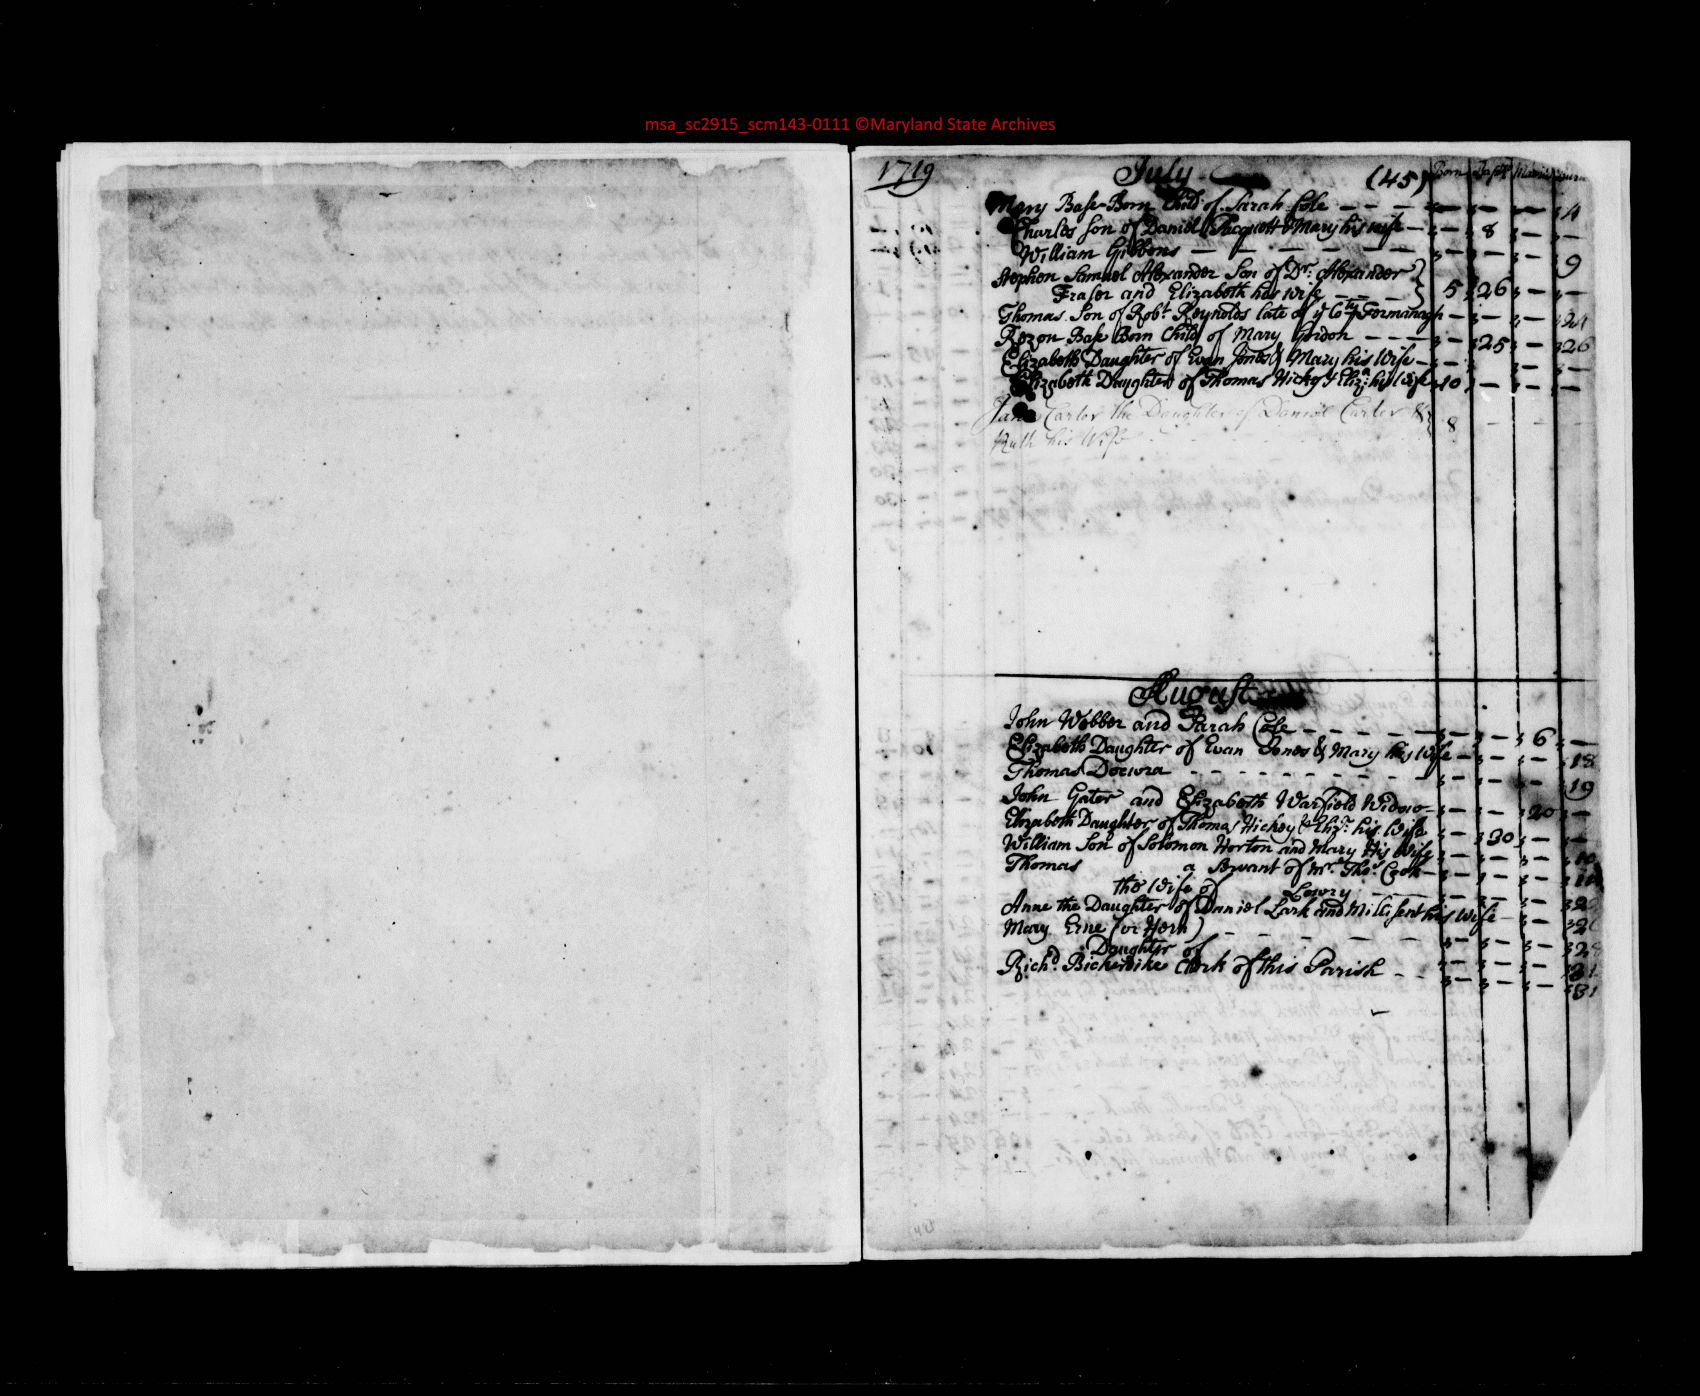 msa_sc2915_scm143-0111 ©Maryland State Archives
1719 July (45) Born Bapt
Mary Base-Born Child of Sarah Cole - - - - - - - 4
Charles Son of Daniel & Mary his wife - - 8 - -
William Gibbons - - - - - - - 9
Stephen Samuel Alexander Son of Dr. Alexander }
Fraser and Elizabeth his Wife - - - } 5 26 - -
Thomas Son of Robt. Reynolds late of ye Coty Fermanagh - - - 24
Rozon Base Born Child of Mary Gordon - - - - 25 - 26
Elizabeth Daughter of Evan Jones & Mary his Wife - - - - -
Elizabeth Daughter of Thomas Hickey & Eliza: his Wife 10 - - -
Jane Carter the Daughter of Daniel Carter & } 8 - - -
Ruth his Wife
August
John Webber and Sarah Cole - - - - - - - - 6 -
Elizabeth Daughter of Evan Jones & Mary his Wife - - - 18
Thomas Docwra - - - - - - - - - - - 19
John Gater and Elizabeth Warfield Widow - - - 20 -
Elizabeth Daughter of Thomas Hickey & Eliza: his Wife - 30 - -
William Son of Solomon Horton and Mary His Wife - - -
Thomas a Servant of Mr. Thos. Cook - - - -
the Wife of Lowry - - - -
Anne the Daughter of Daniel Lark and Millisent his Wife - - -
Mary Erne (or Hern) - - - - - - - -
Daughter of - - - 31
Richd. Bickerdike Clerk of this Parish - - - - - 31